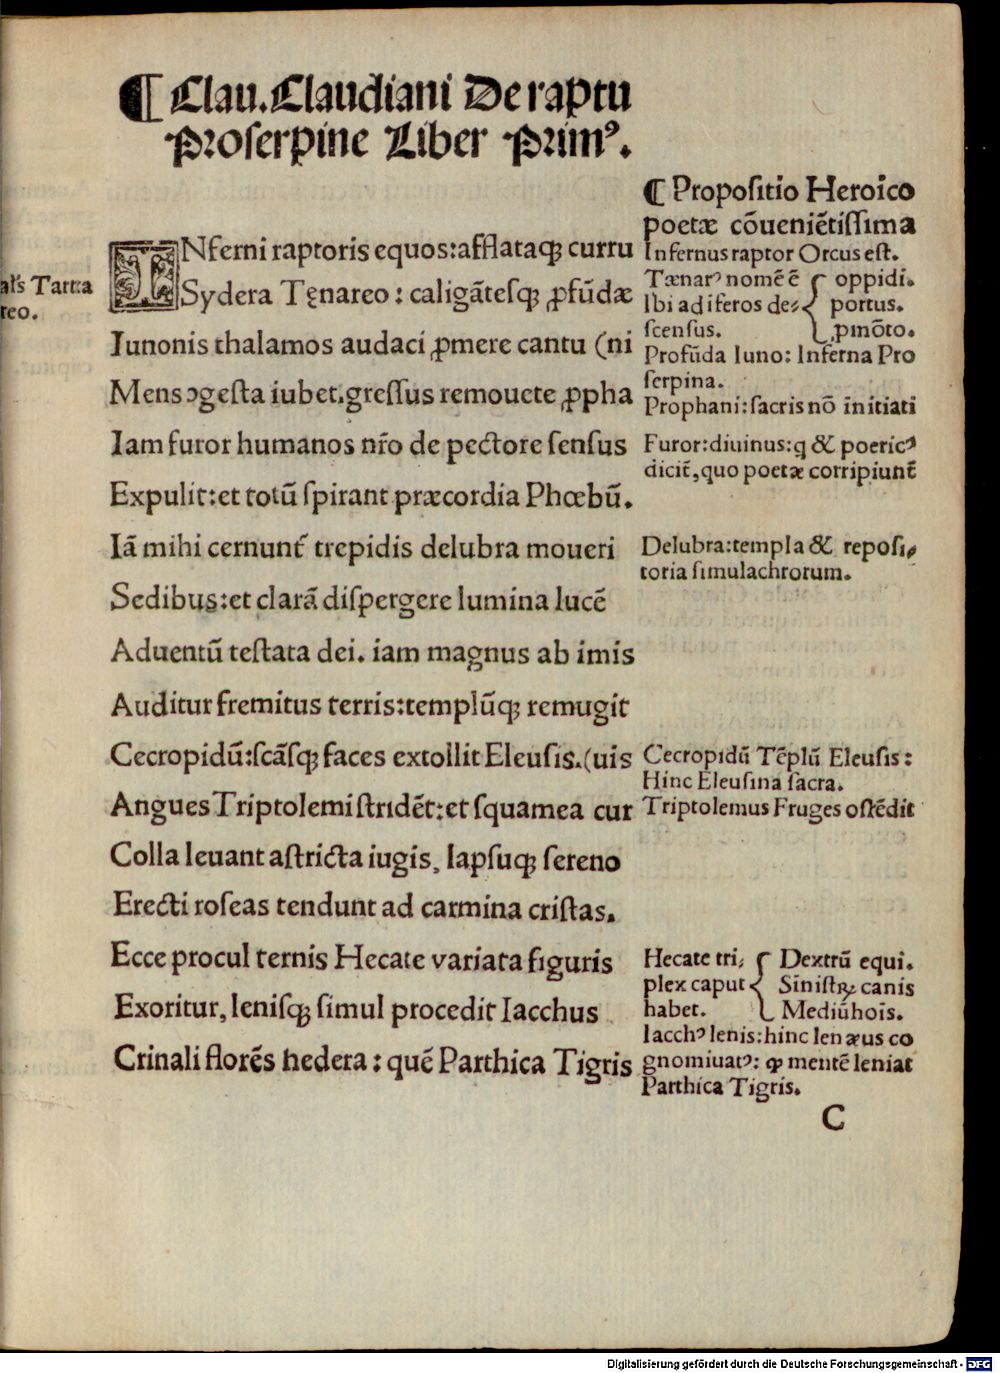 ¶ Clau. Claudiani De raptu
Proserpine Liber Primꝰ.
¶ Propositio Heroico
poetæ cōueniētissima
INferni raptoris equos: afflataqꝫ curru
Infernus raptor Orcus est.
al's Tarta
reo.
Sydera Tęnareo: caligātesqꝫ ꝓfūdæ
Tænarꝰ nomē ē { oppidi.
Ibi ad iferos de⸗ { portus.
scensus. { ꝓmōto.
Iunonis thalamos audaci ꝓmere cantu (ni
Profūda Iuno: Inferna Pro
serpina.
Mens ↄgesta iubet. gressus remouete ꝓpha
Prophani: sacris nō initiati
Iam furor humanos nr̄o de pectore sensus
Furor: diuinus: q & poeticꝰ
dicit̄, quo poetæ corripiunt̄
Expulit: et totū spirant præcordia Phœbū.
Iā mihi cernunt̄ trepidis delubra moueri
Delubra: templa & reposi⸗
toria simulachrorum.
Sedibus: et clarā dispergere lumina lucē
Aduentū testata dei. iam magnus ab imis
Auditur fremitus terris: templūqꝫ remugit
Cecropidū: scāsqꝫ faces extollit Eleusis. (uis
Cecropidū Tēplū Eleusis:
Hinc Eleusina sacra.
Angues Triptolemi stridēt: et squamea cur
Triptolemus Fruges ostēdit
Colla leuant astricta iugis, lapsuqꝫ sereno
Erecti roseas tendunt ad carmina cristas.
Ecce procul ternis Hecate variata figuris
Hecate tri⸗ { Dextrū equi.
plex caput { Sinistꝝ canis
habet. { Mediū hoīs.
Exoritur, lenisqꝫ simul procedit Iacchus
Iacchꝰ lenis: hinc lenæus co
Crinali florēs hedera: quē Parthica Tigris
gnomiuatꝰ: ꝙ mentē leniat
Parthica Tigris.
C
Digitalisierung gefördert durch die Deutsche Forschungsgemeinschaft - DFG